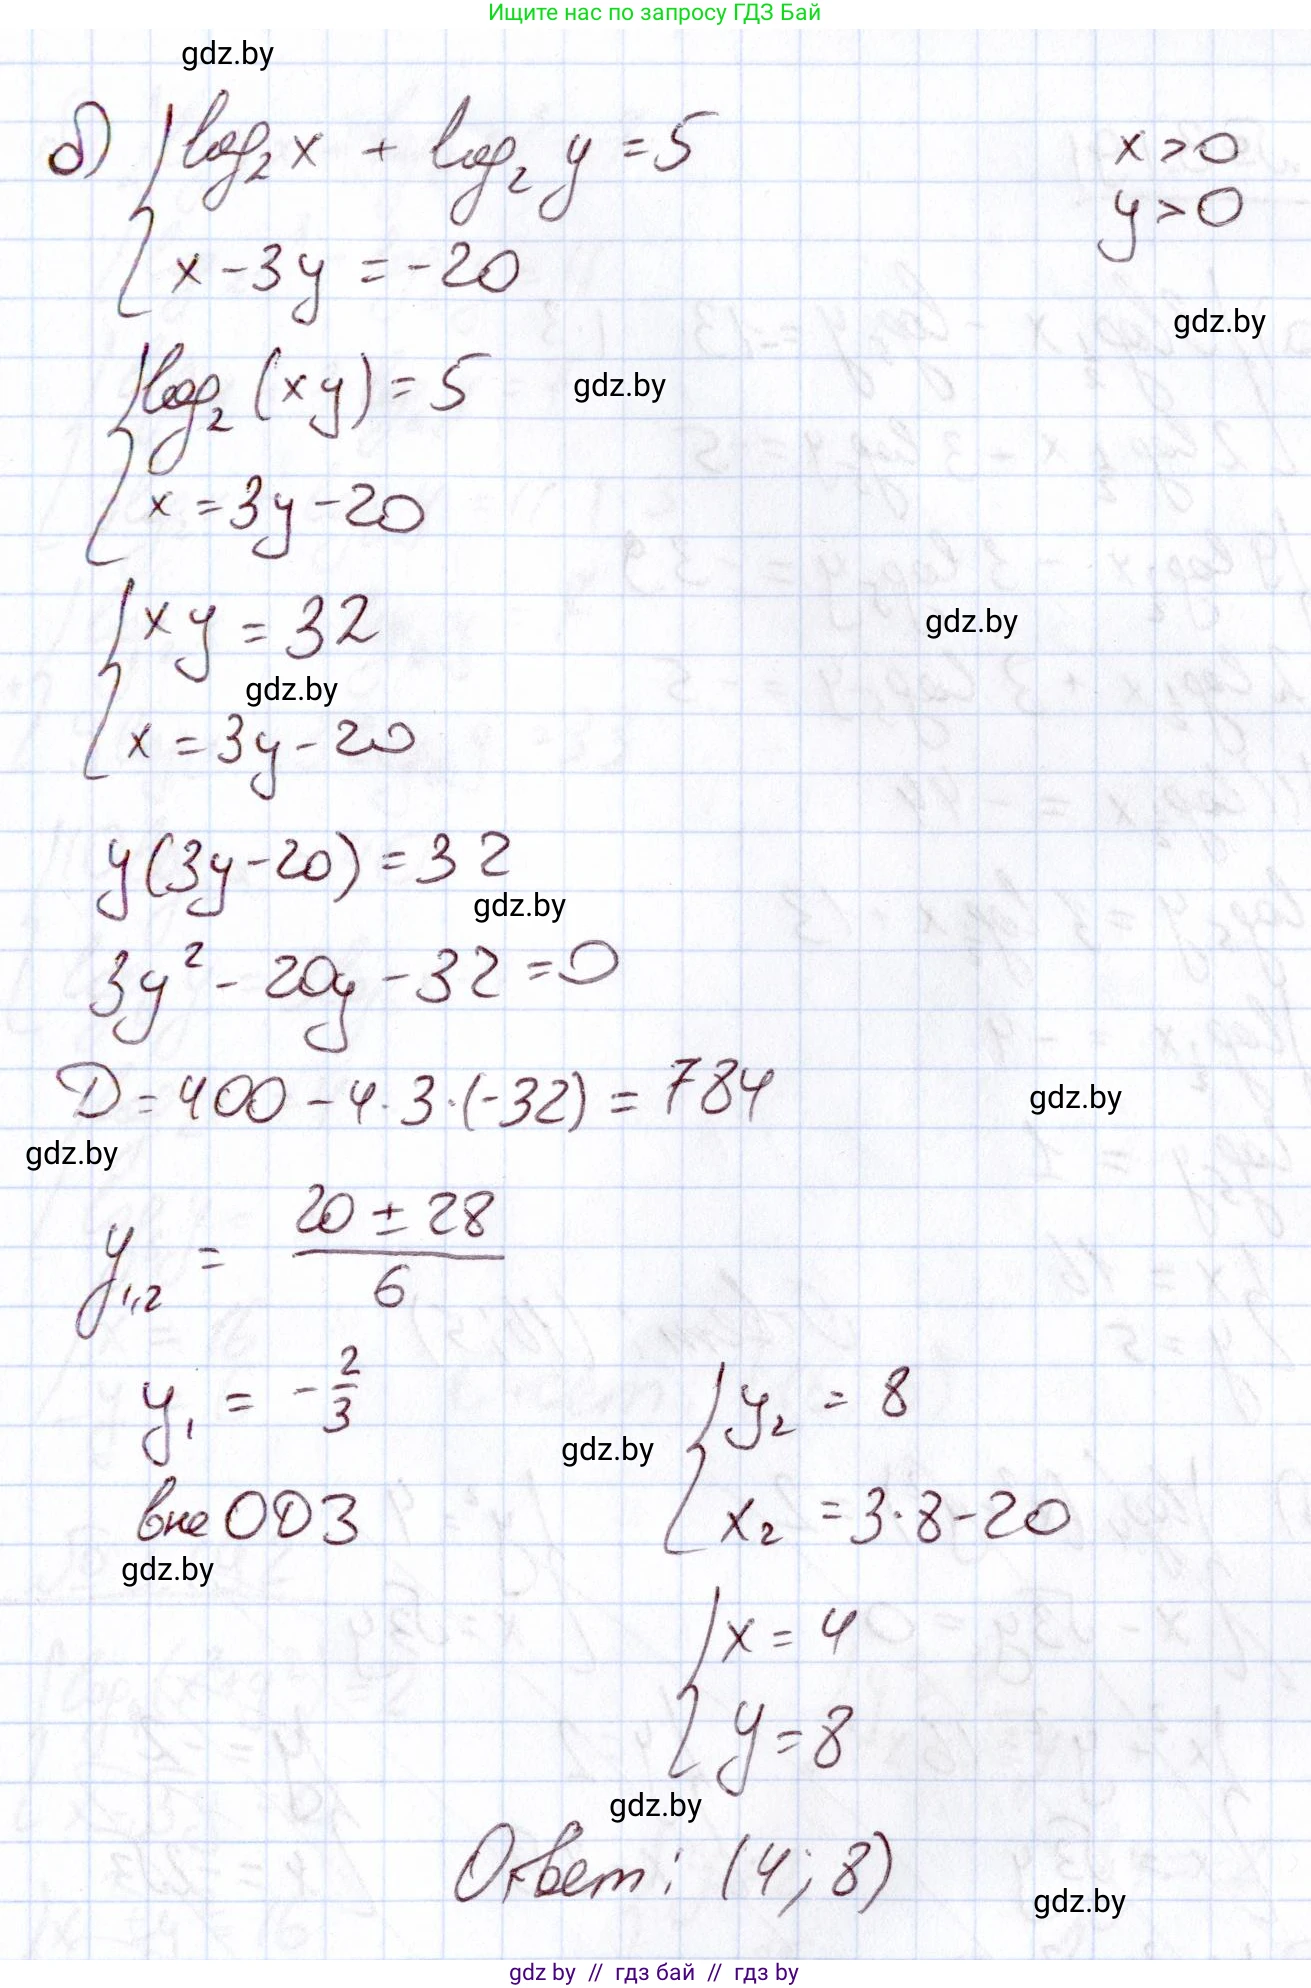 Ищите нас по запросу ГДЗ Бай
gdz.by
б) { log₂ x + log₂ y = 5 x > 0
x - 3y = -20 y > 0
gdz.by
{ log₂ (xy) = 5 gdz.by
x = 3y - 20
{ xy = 32 gdz.by
gdz.by
x = 3y - 20
y(3y - 20) = 32
gdz.by
3y² - 20y - 32 = 0
D = 400 - 4 · 3 · (-32) = 784 gdz.by
gdz.by
y₁,₂ = (20 ± 28)/6
y₁ = -2/3 { y₂ = 8
gdz.by
вне ОДЗ x₂ = 3 · 8 - 20
gdz.by
{ x = 4
y = 8
gdz.by
Ответ: (4; 8)
gdz.by
gdz by // гдз бай // гдз by